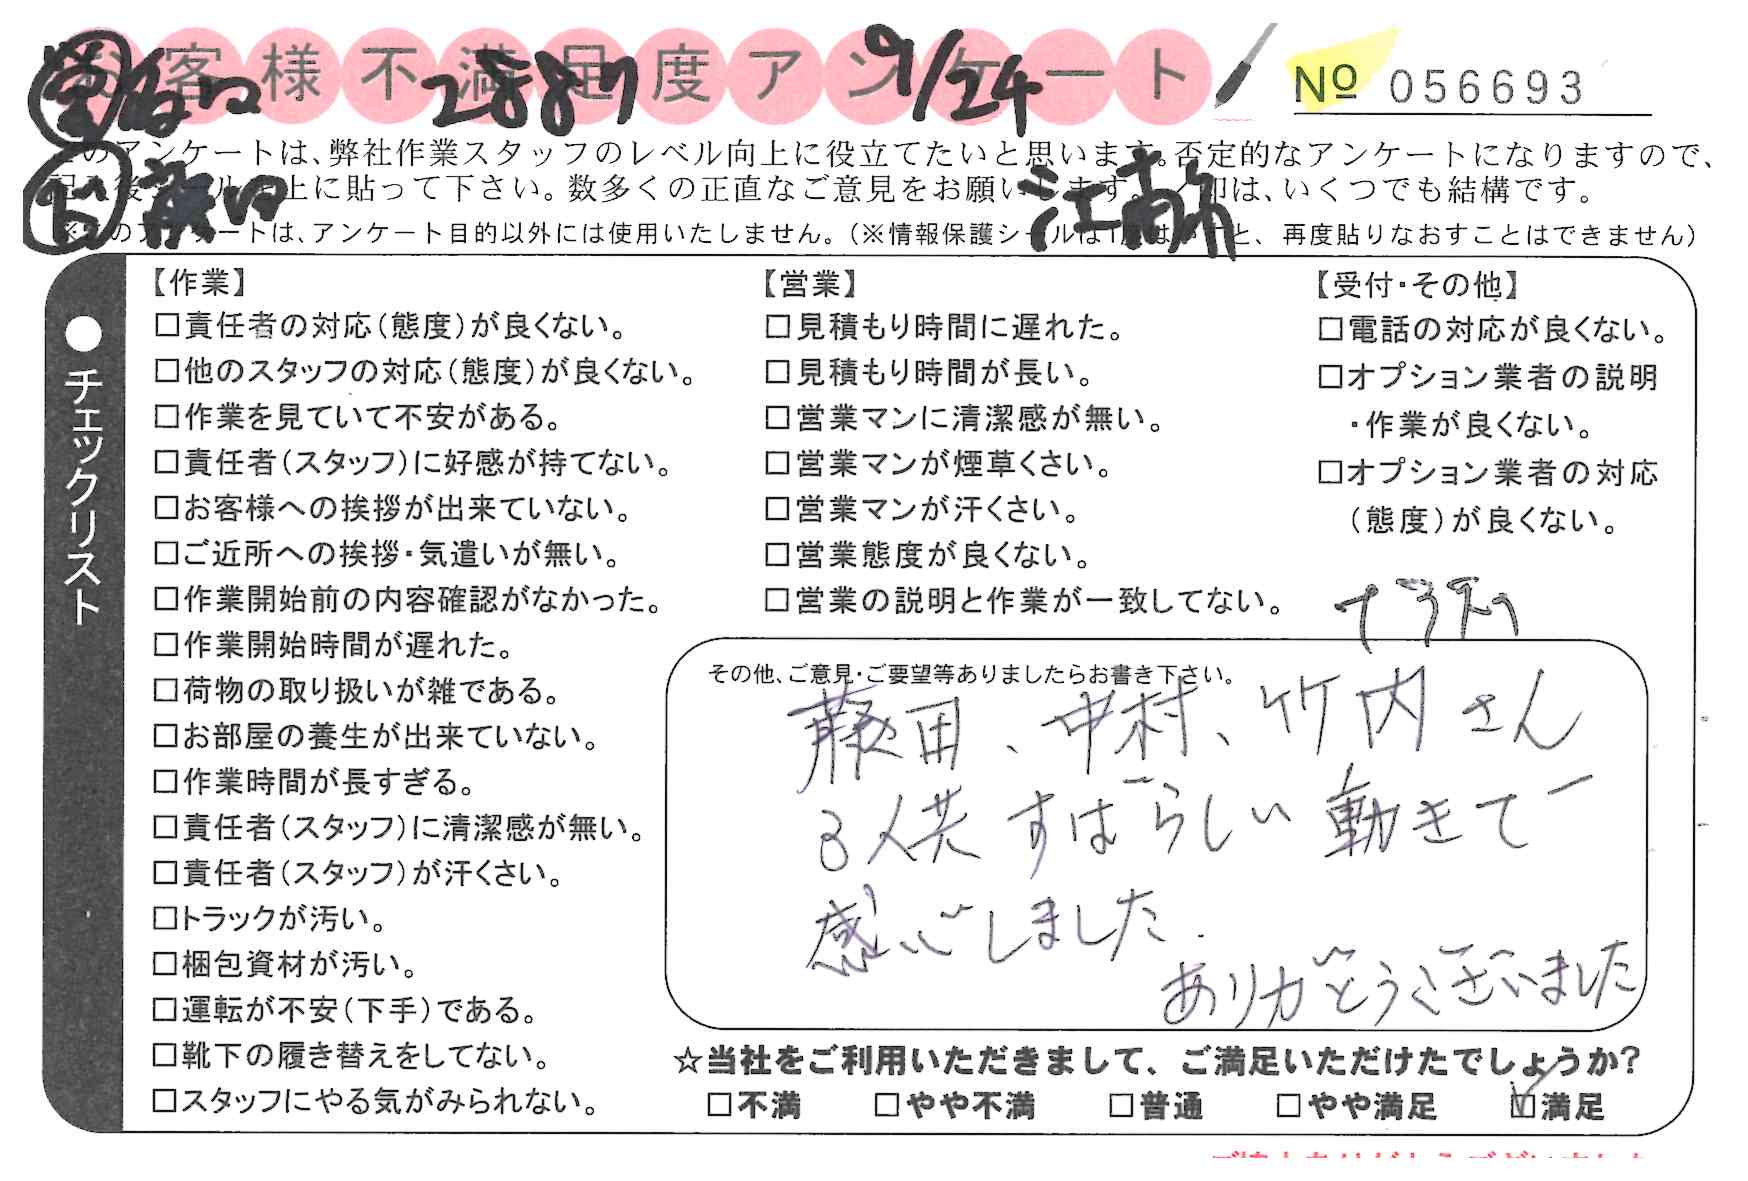 お客様不満足度アンケート
2887
9/24
№ 056693
このアンケートは、弊社作業スタッフのレベル向上に役立てたいと思います。否定的なアンケートになりますので、
記入後シールを上に貼って下さい。数多くの正直なご意見をお願いします。✓印は、いくつでも結構です。
※このアンケートは、アンケート目的以外には使用いたしません。(※情報保護シールは1度はがすと、再度貼りなおすことはできません)
江南
●チェックリスト
【作業】
□責任者の対応(態度)が良くない。
□他のスタッフの対応(態度)が良くない。
□作業を見ていて不安がある。
□責任者(スタッフ)に好感が持てない。
□お客様への挨拶が出来ていない。
□ご近所への挨拶・気遣いが無い。
□作業開始前の内容確認がなかった。
□作業開始時間が遅れた。
□荷物の取り扱いが雑である。
□お部屋の養生が出来ていない。
□作業時間が長すぎる。
□責任者(スタッフ)に清潔感が無い。
□責任者(スタッフ)が汗くさい。
□トラックが汚い。
□梱包資材が汚い。
□運転が不安(下手)である。
□靴下の履き替えをしてない。
□スタッフにやる気がみられない。
【営業】
□見積もり時間に遅れた。
□見積もり時間が長い。
□営業マンに清潔感が無い。
□営業マンが煙草くさい。
□営業マンが汗くさい。
□営業態度が良くない。
□営業の説明と作業が一致してない。
【受付・その他】
□電話の対応が良くない。
□オプション業者の説明
・作業が良くない。
□オプション業者の対応
(態度)が良くない。
その他、ご意見・ご要望等ありましたらお書き下さい。
藤田、中村、竹内さん
3人共すばらしい動きで
感心しました.
ありがとうございました
☆当社をご利用いただきまして、ご満足いただけたでしょうか?
□不満 □やや不満 □普通 □やや満足 ☑満足